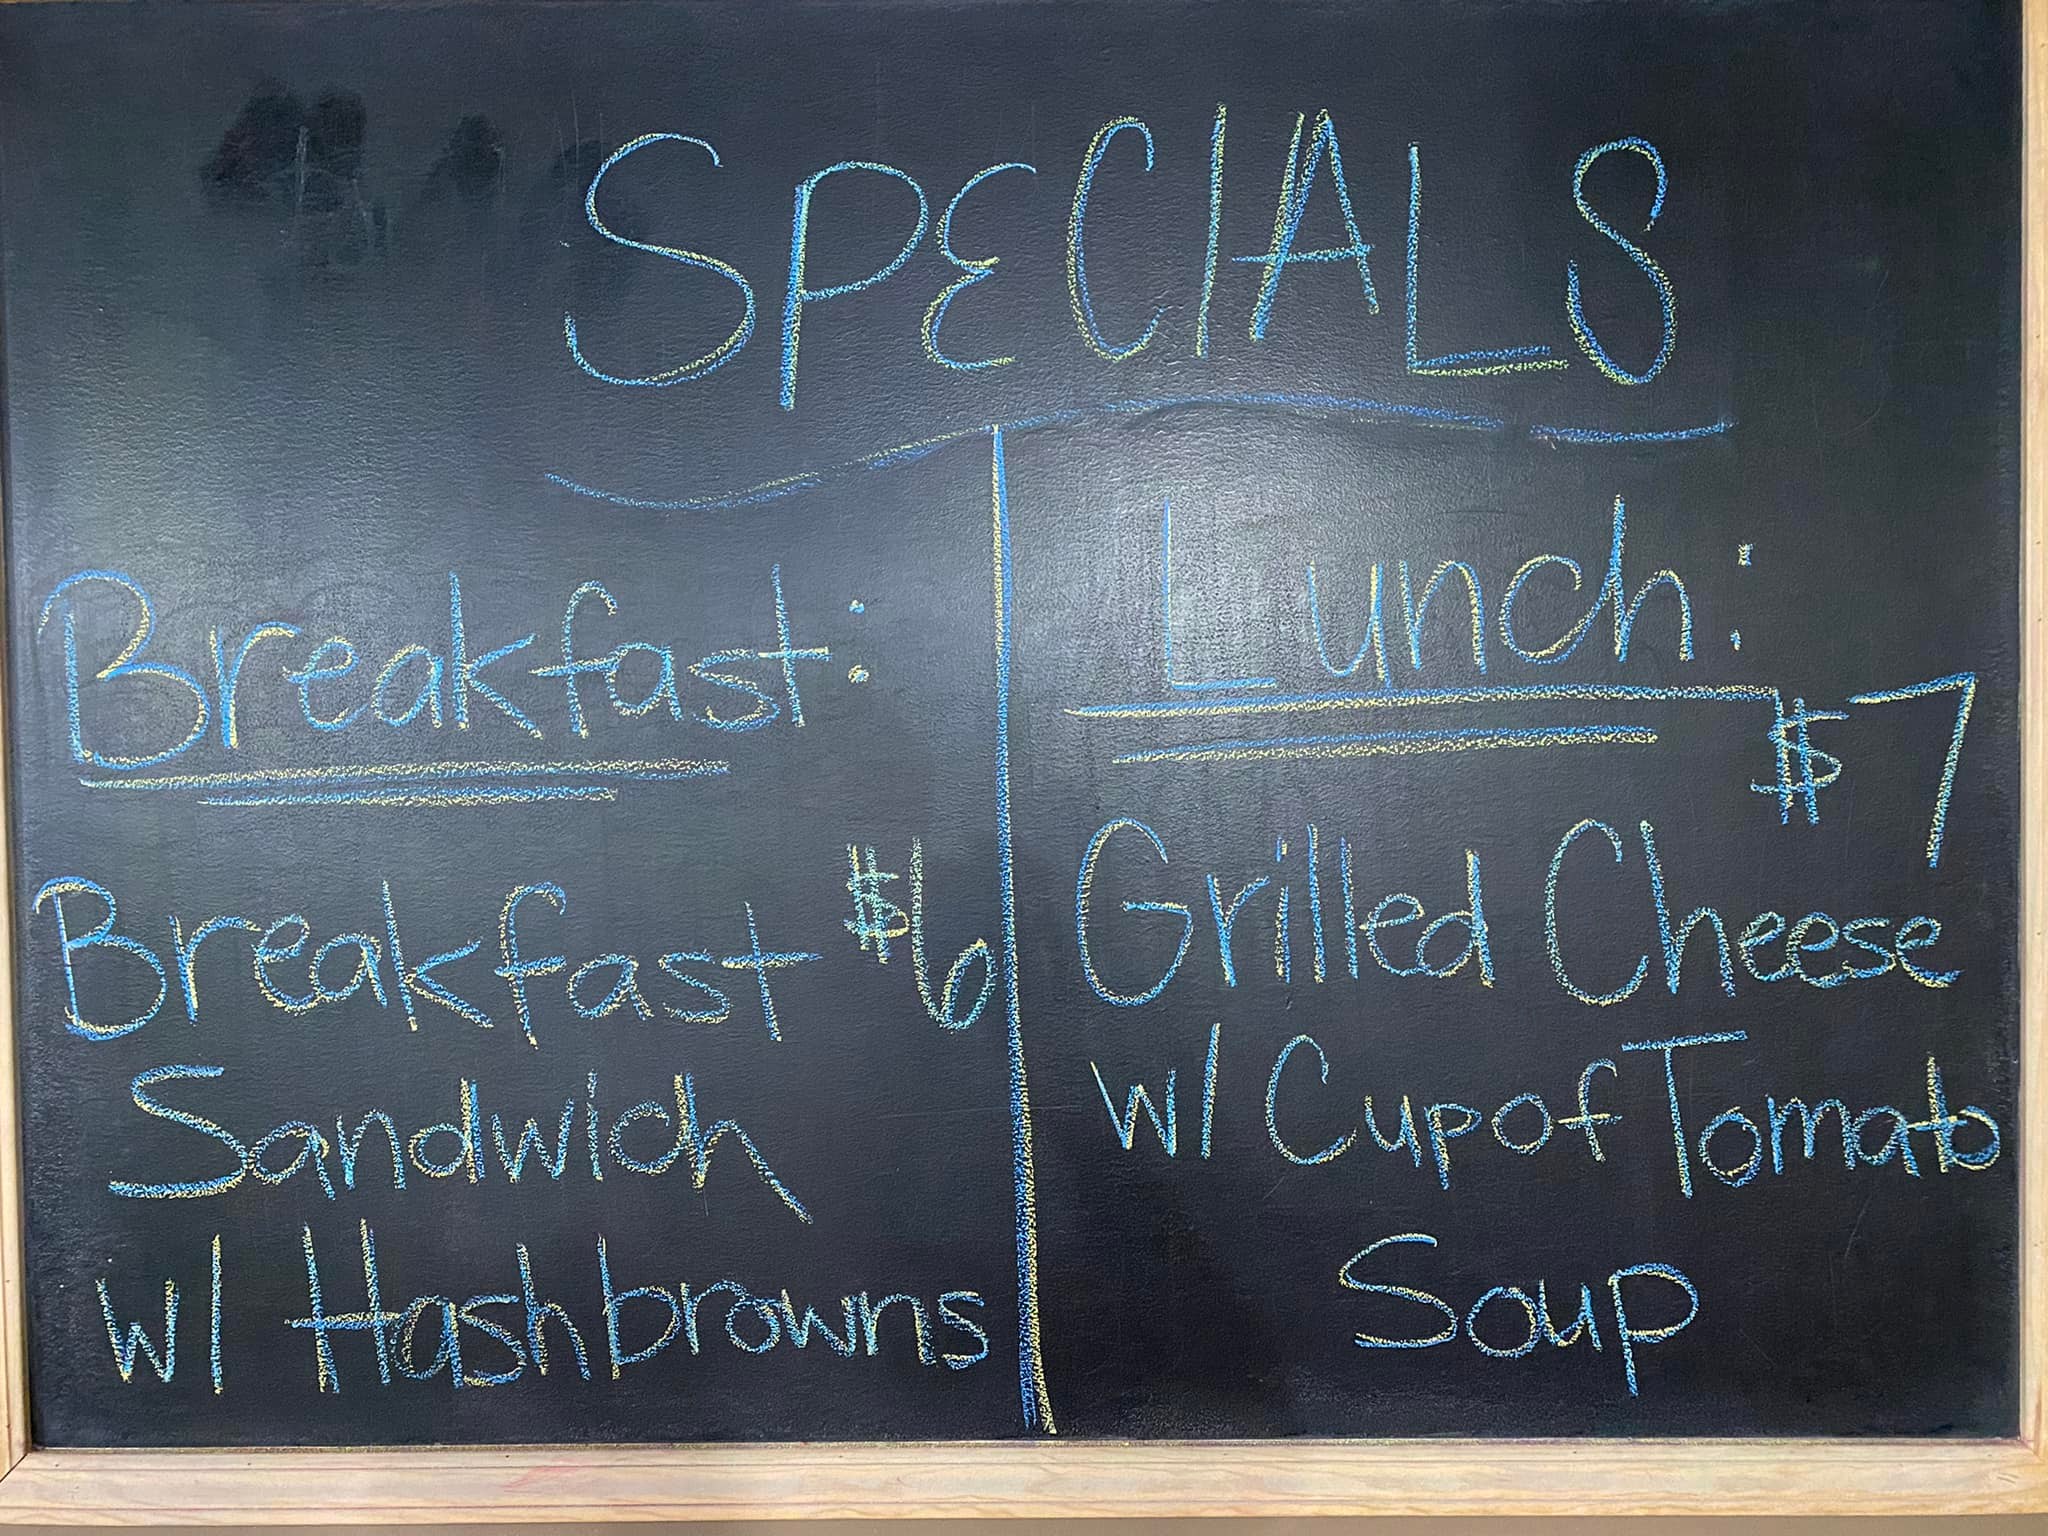 SPECIALS
Breakfast:
Breakfast $6
Sandwich
w/ Hashbrowns
Lunch:
$7
Grilled Cheese
w/ Cup of Tomato
Soup